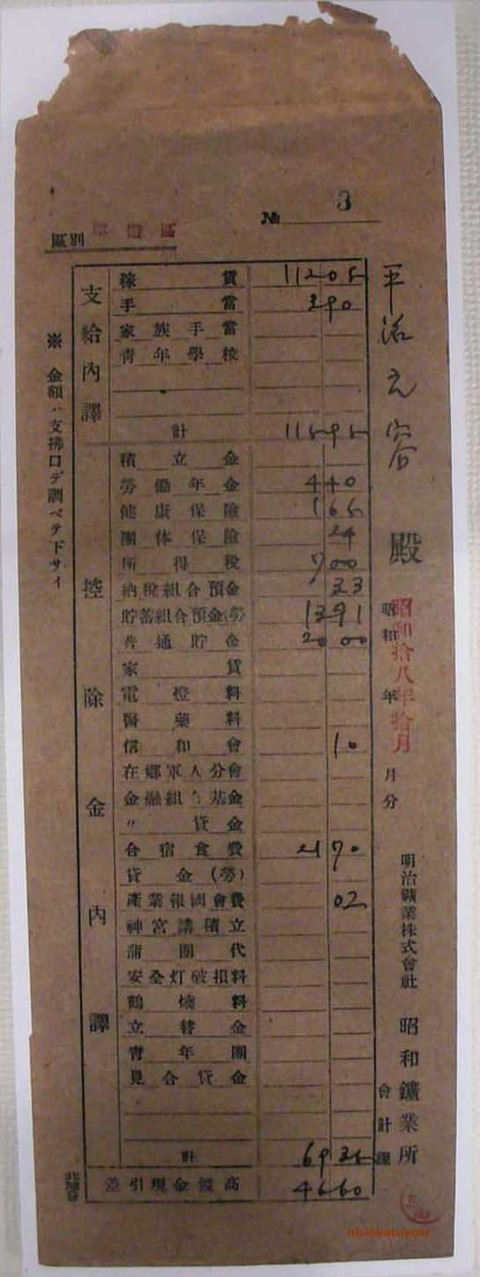 № 3
區別
平沼之容 殿
昭和拾八年拾月
昭和 年 月分
明治鑛業株式會社 昭和鑛業所
會計課
※ 金額ハ支拂口デ調ベテ下サイ
支給內譯
稼賃 11205
手當 390
家族手當
青年學校
計 11595
控除金內譯
積立金
勞働年金 440
健康保險 165
團体保險 24
所得稅 700
納稅組合預金 33
貯蓄組合預金(勞) 1391
普通貯金 2000
家賃
電燈料
醫藥料
信和會 10
在鄉軍人分會
金融組合基金
〃 貸金
合宿食費 2170
貸金(勞)
產業報國會費 02
神宮講積立
蒲團代
安全灯破損料
鶴嘴料
立替金
青年團
見合貸金
計 6935
差引現金渡高 4660